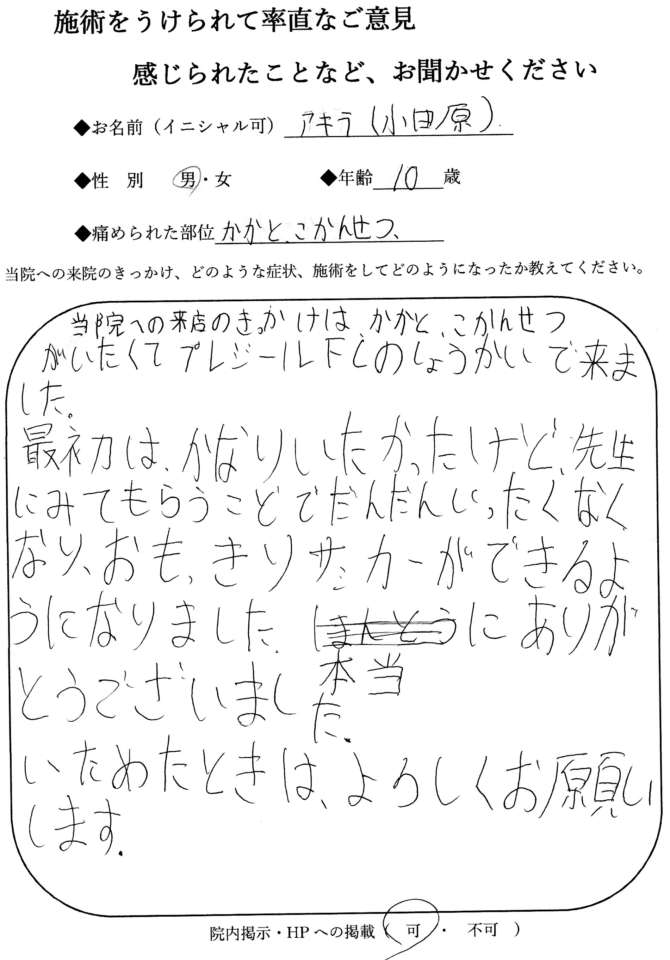 施術をうけられて率直なご意見
感じられたことなど、お聞かせください
◆お名前（イニシャル可） アキラ（小田原）
◆性　別　男・女　◆年齢 10 歳
◆痛められた部位 かかと、こかんせつ、
当院への来院のきっかけ、どのような症状、施術をしてどのようになったか教えてください。
当院への来店のきっかけは、かかと、こかんせつ
がいたくてプレジールFCのしょうかいで来ま
した。
最初は、かなりいたかったけど、先生
にみてもらうことでだんだんいったくなく
なり、おもっきりサッカーができるよ
うになりました。ほんとうにありが
本当
とうございました。
いためたときは、よろしくお願い
します。
院内掲示・HPへの掲載（　可　・　不可　）